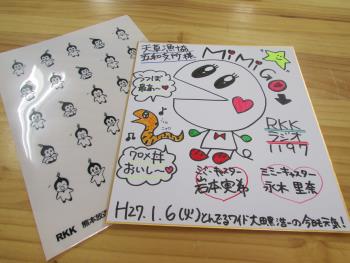 天草漁協
五和支所様
MiMiGO
うつぼ
最高〜
RKK
ラジオ
1197
クロメ丼
おいし〜
ジョーキャスター
岩本実希
ミミーキャスター
永木里奈
H27.1.6(火)とんでるワイド大田黒浩一の今日も元気!
RKK 熊本放送